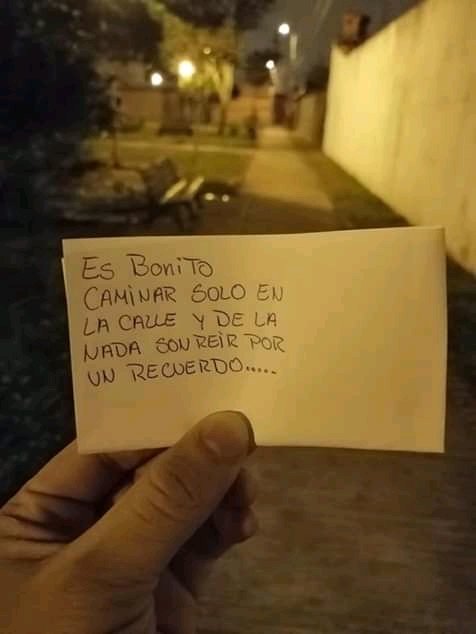 Es BoniTo
CAMINAR SOLO EN
LA CALLE Y DE LA
NADA SONREIR POR
UN RECUERDO.....